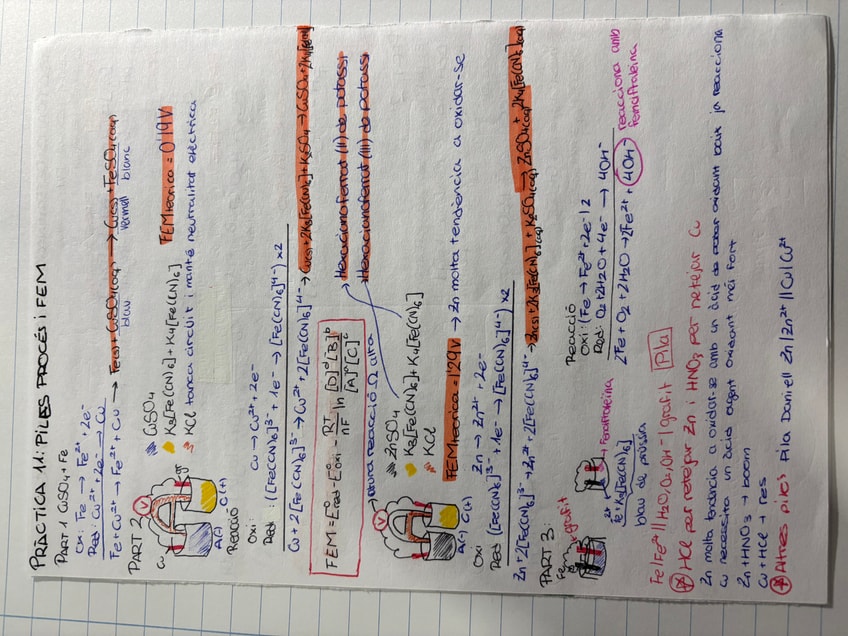 PRÀCTICA 11: PILES PROCÉS i FEM
PART 1 CuSO4 + Fe
Oxi: Fe → Fe2+ + 2e-
Red: Cu2+ + 2e- → Cu
Fe + Cu2+ → Fe2+ + Cu → Fe(s) + CuSO4(aq) → Cu(s) + FeSO4(aq)
blau vermell blanc
PART 2
Cu
V
CuSO4
K3[Fe(CN)6] + K4[Fe(CN)6]
FEM teòrica = 0'19 V
KCl tanca circuit i manté neutralitat elèctrica
A(-) C(+)
Reacció
Oxi: Cu → Cu2+ + 2e-
Red: ([Fe(CN)6]3- + 1e- → [Fe(CN)6]4-) x2
Cu + 2[Fe(CN)6]3- → Cu2+ + 2[Fe(CN)6]4- → Cu(s) + 2K3[Fe(CN)6] + K2SO4 → CuSO4 + 2K4[Fe(CN)6]
FEM = E°red - E°oxi - RT/nF ln [D]d[B]b/[A]a[C]c
Hexacianoferrat (II) de potassi
Hexacianoferrat (III) de potassi
reacció Ω alta
V
ZnSO4
K3[Fe(CN)6] + K4[Fe(CN)6]
KCl
A(-) C(+)
FEM teòrica = 1'29 V → Zn molta tendència a oxidar-se
Oxi: Zn → Zn2+ + 2e-
Red: ([Fe(CN)6]3- + 1e- → [Fe(CN)6]4-) x2
Zn + 2[Fe(CN)6]3- → Zn2+ + 2[Fe(CN)6]4- → Zn(s) + 2K3[Fe(CN)6](aq) + K2SO4(aq) → ZnSO4(aq) + 2K4[Fe(CN)6](aq)
PART 3:
Fe
grafit
Fenolftaleïna
Fe2+ + K3[Fe(CN)6]
blau de prússia
Reacció
Oxi: (Fe → Fe2+ + 2e-) 2
Red: O2 + 2H2O + 4e- → 4OH-
2Fe + O2 + 2H2O → 2Fe2+ + 4OH- reacciona amb fenolftaleïna
Fe | Fe2+ || H2O, O2, OH- | grafit Pila
* HCl per netejar Zn i HNO3 per netejar Cu
Zn molta tendència a oxidar-se amb un àcid de poder oxidant baix ja reacciona
Cu necessita un àcid agent oxidant més fort
Zn + HNO3 → boom
Cu + HCl → res
* Altres piles Pila Daniell Zn | Zn2+ || Cu | Cu2+